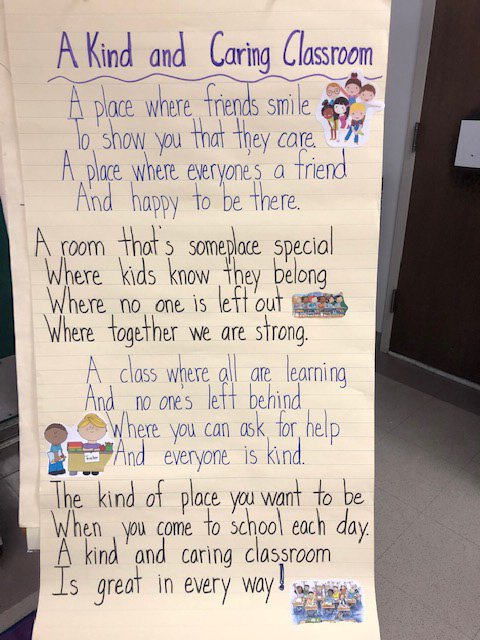 A Kind and Caring Classroom
A place where friends smile
To show you that they care.
A place where everyone's a friend
And happy to be there.
A room that's someplace special
Where kids know they belong
Where no one is left out
Where together we are strong.
A class where all are learning
And no ones left behind
Where you can ask for help
And everyone is kind.
The kind of place you want to be
When you come to school each day.
A kind and caring classroom
Is great in every way!
Teacher